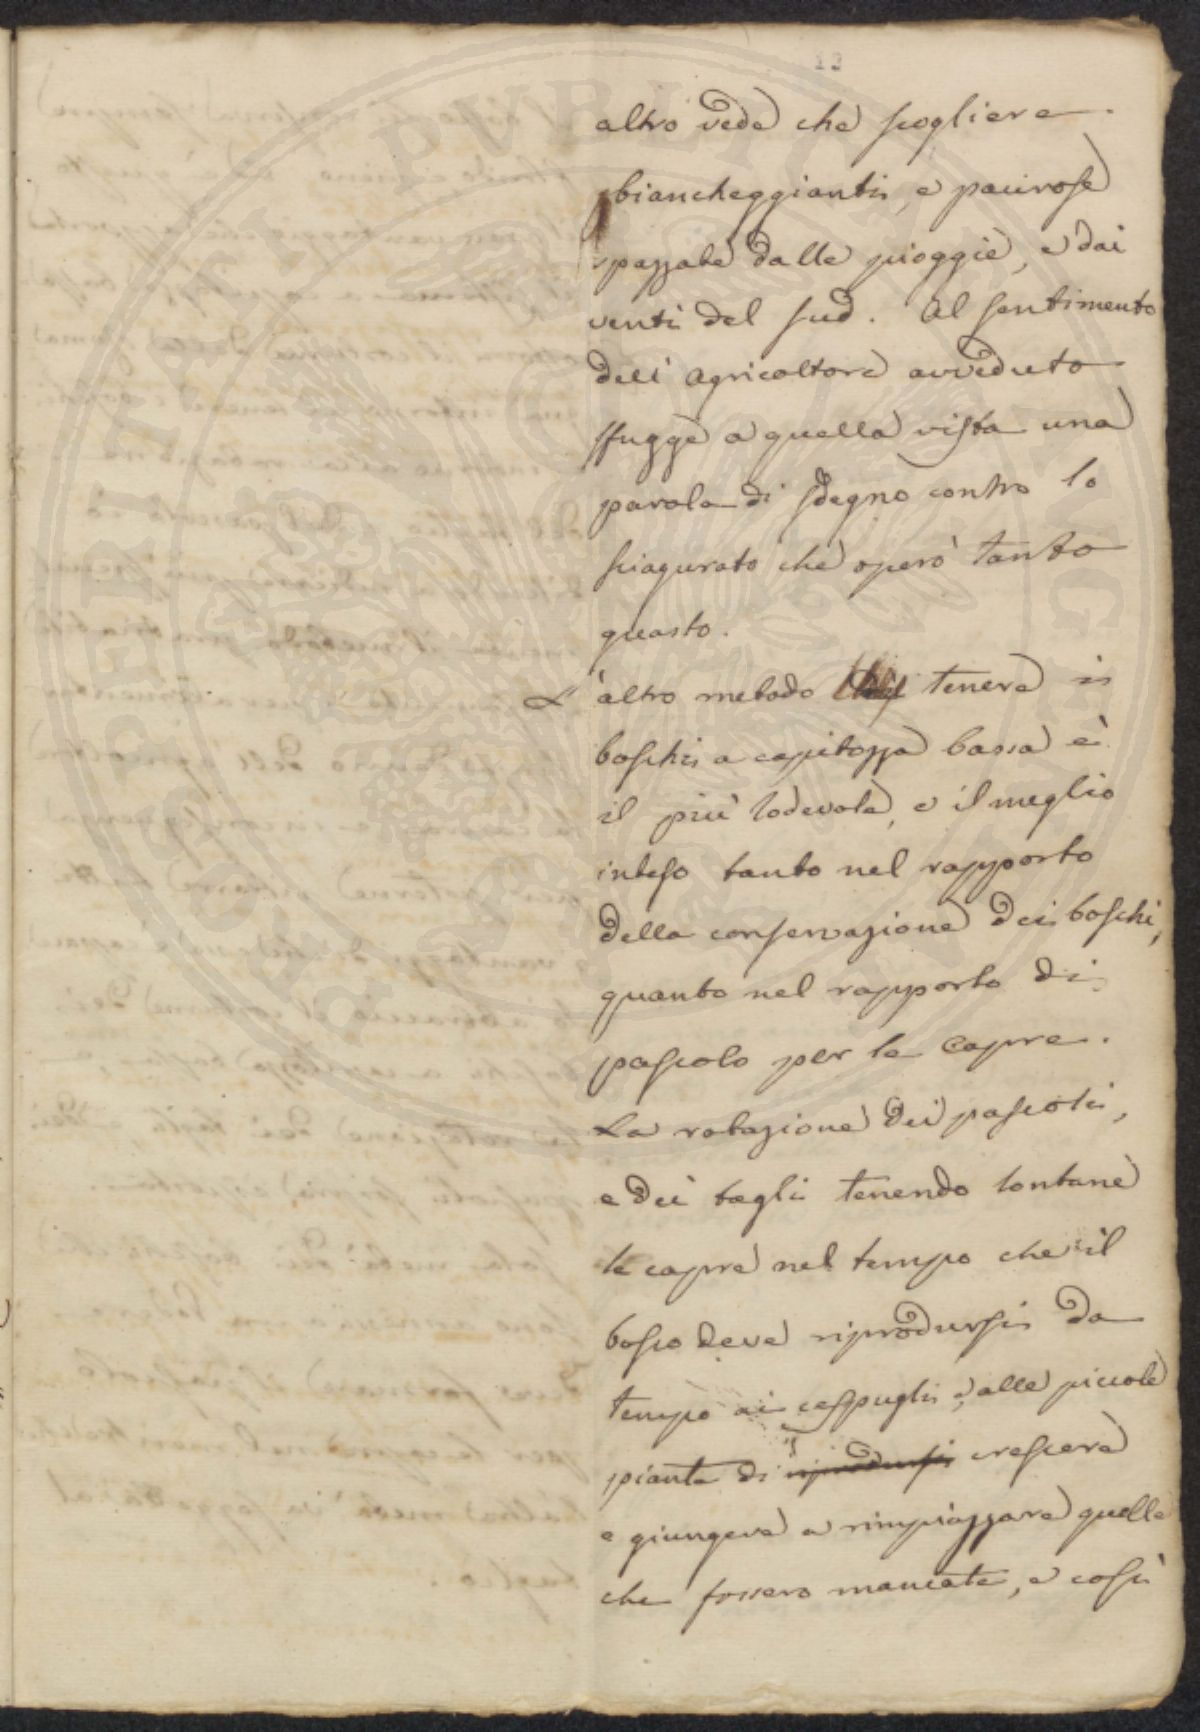 12
altro vede che scogliere
biancheggianti, e paurose
spazzate dalle pioggie, e dai
venti del sud. Al sentimento
dell'agricoltore avveduto
sfugge a quella vista una
parola di sdegno contro lo
sciagurato che operò tanto
guasto.
L'altro metodo tenere i
boschi a capitozza bassa è
il più lodevole, e il meglio
inteso tanto nel rapporto
della conservazione dei boschi,
quanto nel rapporto di
pascolo per le capre.
La rotazione dei pascoli,
e dei tagli tenendo lontane
le capre nel tempo che il
bosco deve riprodursi da
tempo ai cespugli, e alle piccole
piante di riprodursi crescere
e giungere a rimpiazzare quelle
che fossero mancate, e così
PUBLICAE
PROSPERITATI